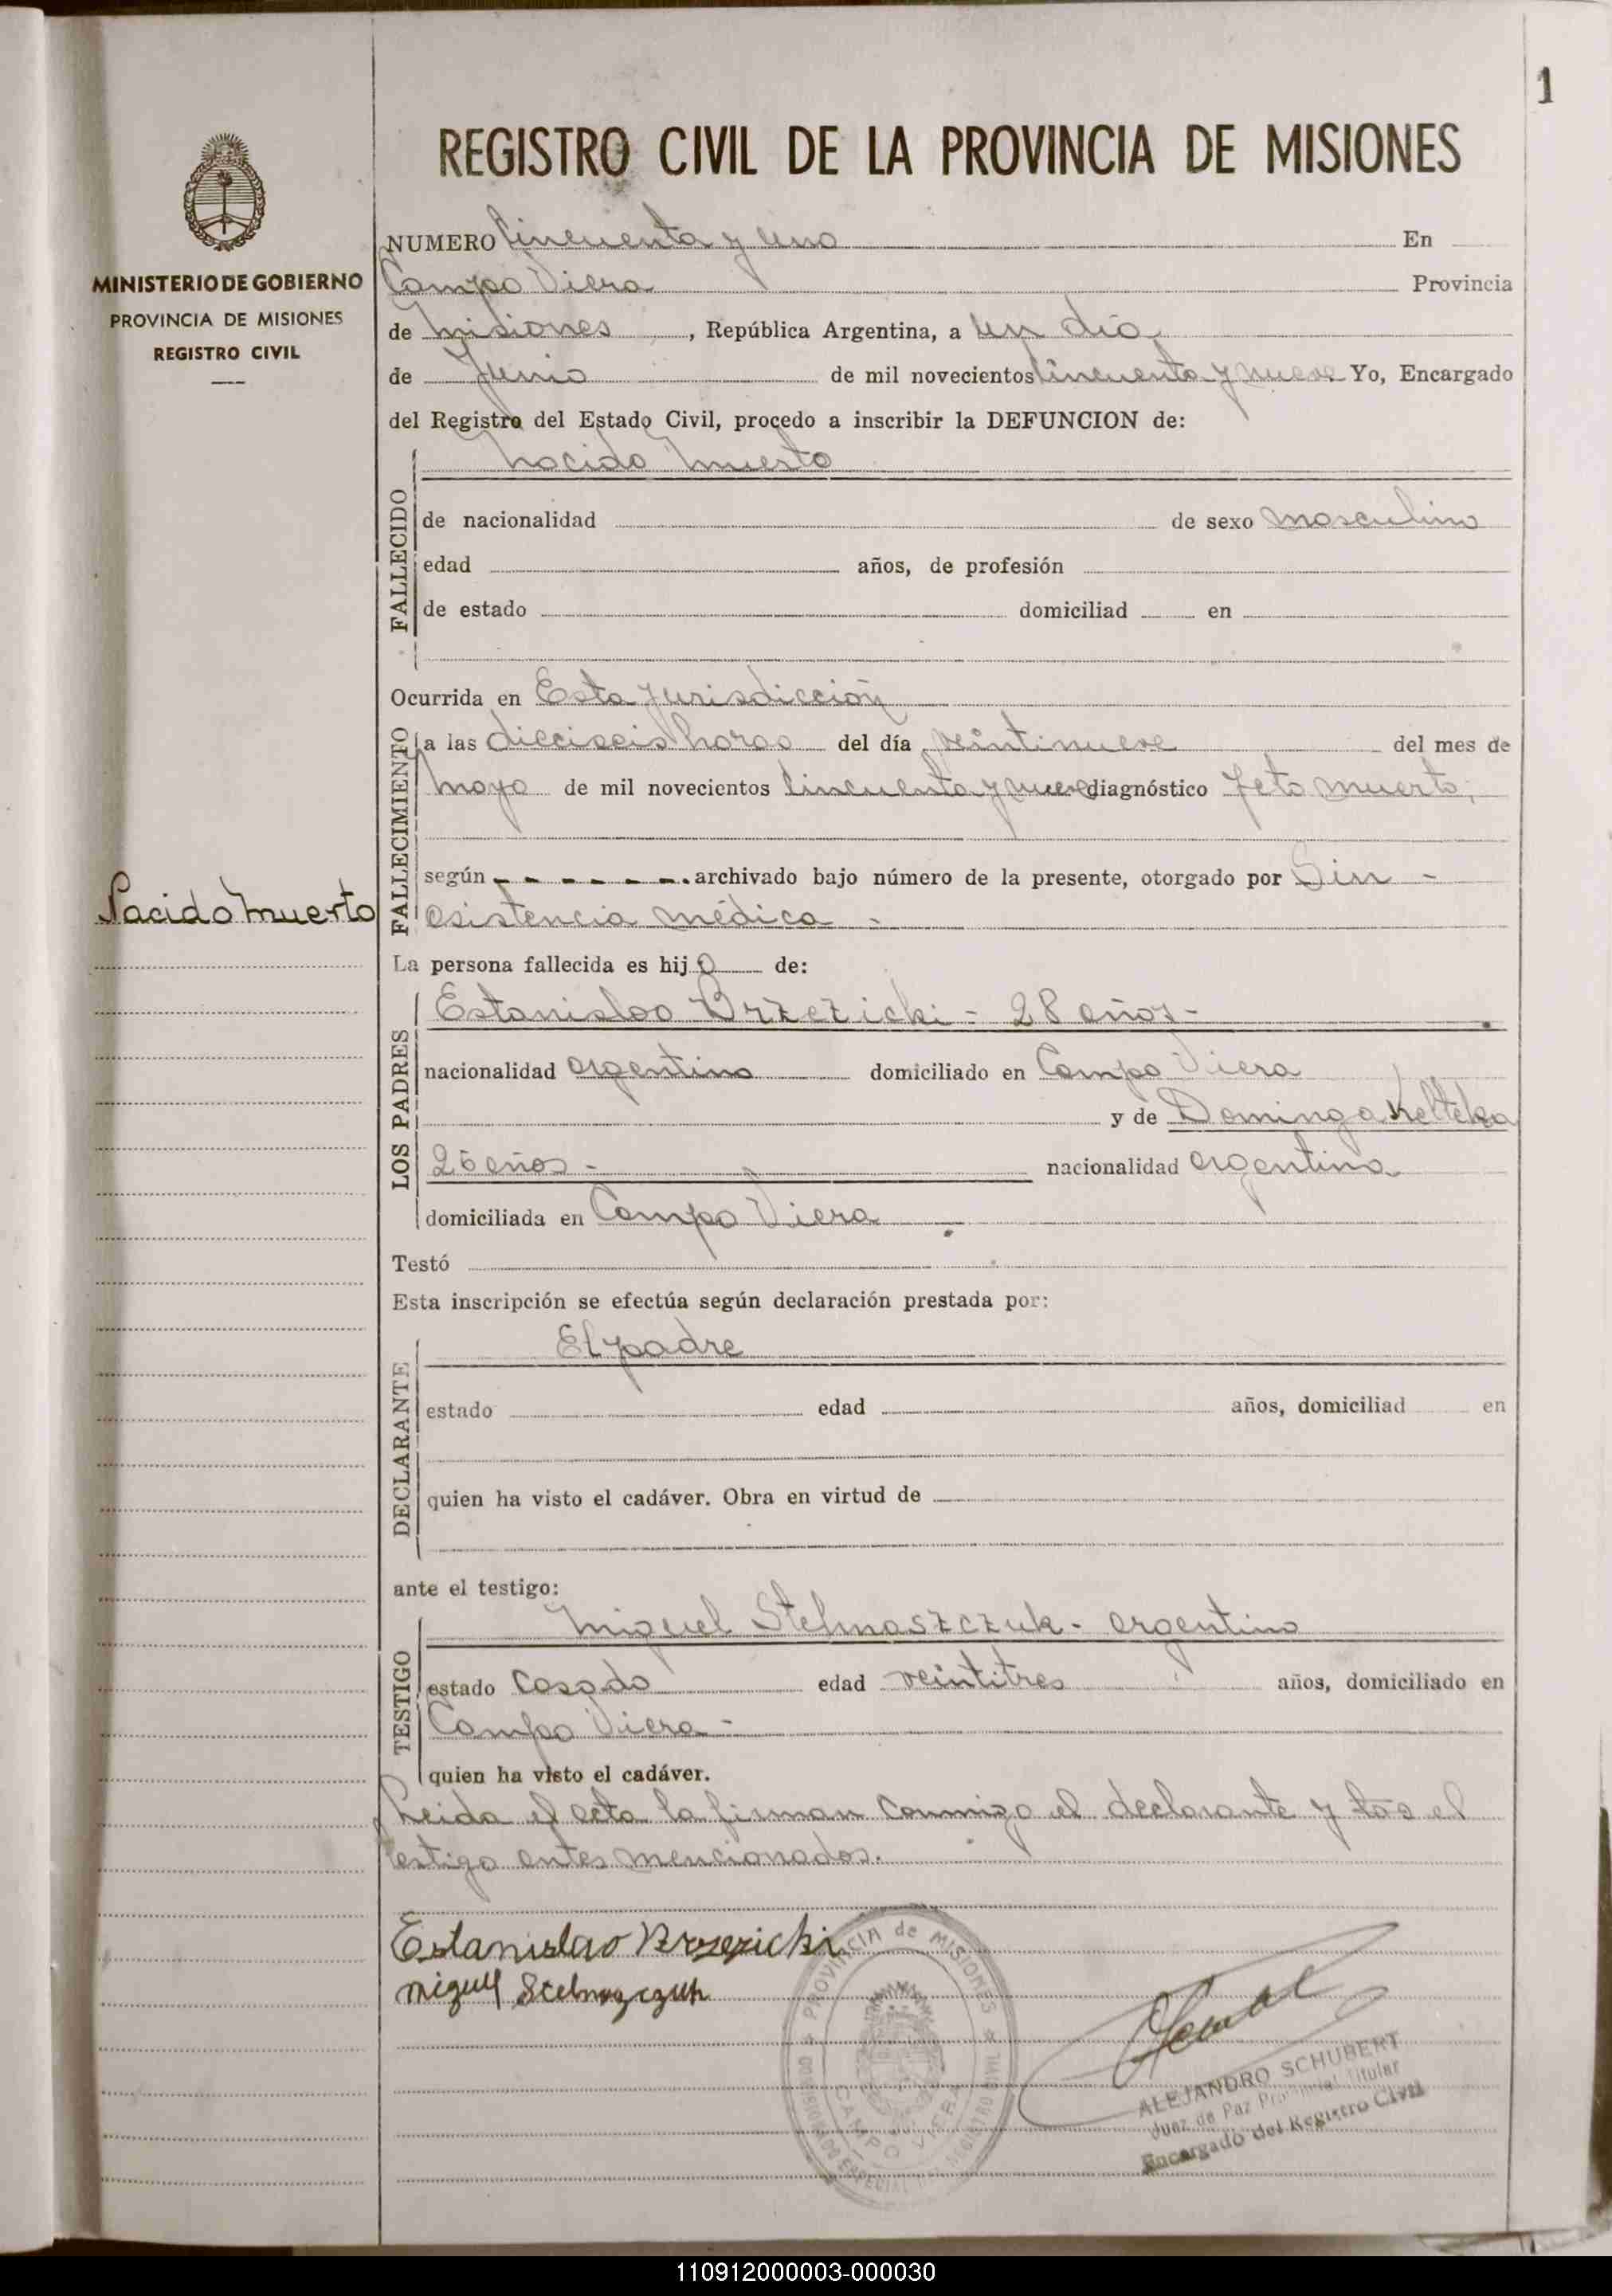 1
REGISTRO CIVIL DE LA PROVINCIA DE MISIONES
MINISTERIO DE GOBIERNO
PROVINCIA DE MISIONES
REGISTRO CIVIL
Nacido Muerto
NUMERO Cincuenta y uno En
Campo Viera Provincia
de Misiones, República Argentina, a un día
de Junio de mil novecientos Cincuenta y nueve Yo, Encargado
del Registro del Estado Civil, procedo a inscribir la DEFUNCION de:
FALLECIDO
Nacido Muerto
de nacionalidad de sexo masculino
edad años, de profesión
de estado domiciliad en
Ocurrida en Esta Jurisdicción
FALLECIMIENTO
a las dieciseis horas del día veintinueve del mes de
Mayo de mil novecientos Cincuenta y nueve diagnóstico Feto muerto,
según - - - - - - . archivado bajo número de la presente, otorgado por Sin -
asistencia médica -
La persona fallecida es hijo de:
LOS PADRES
Estanislao Brzezicki - 28 años -
nacionalidad argentino domiciliado en Campo Viera
y de Dominga
26 años - nacionalidad argentina
domiciliada en Campo Viera
Testó
Esta inscripción se efectúa según declaración prestada por:
DECLARANTE
El padre
estado edad años, domiciliad en
quien ha visto el cadáver. Obra en virtud de
ante el testigo:
TESTIGO
Miguel Stelmaszczuk - argentino
estado Casado edad veintitres años, domiciliado en
Campo Viera -
quien ha visto el cadáver.
Leida el acta la firman conmigo el declarante y el
testigo antes mencionados.
Estanislao Brzezicki
Miguel Stelmaszczuk
PROVINCIA de MISIONES
REGISTRO CIVIL
CAMPO VIERA
ALEJANDRO SCHUBERT
Juez de Paz Provincial Titular
Encargado del Registro Civil
110912000003-000030